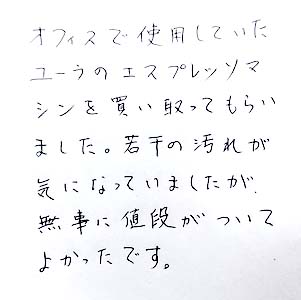 オフィスで使用していた
ユーラのエスプレッソマ
シンを買い取ってもらい
ました。若干の汚れが
気になっていましたが、
無事に値段がついて
よかったです。